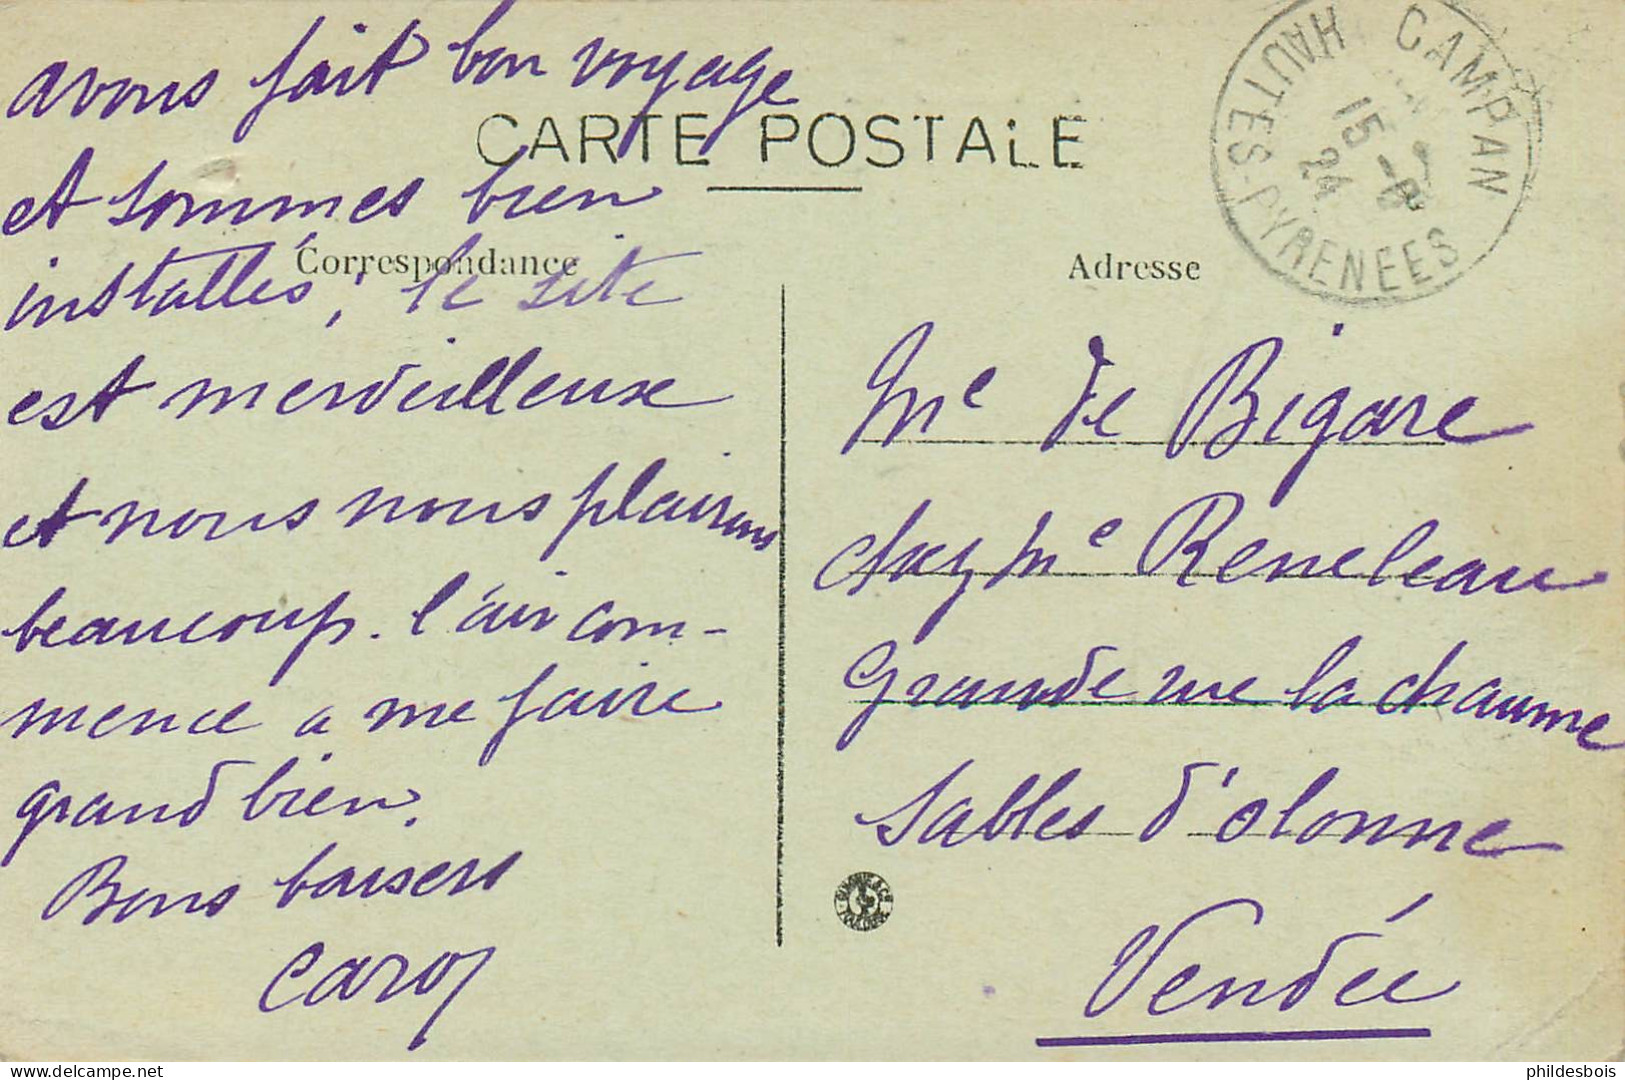 avons fait bon voyage
CARTE POSTALE
et sommes bien
Correspondance
installés, le site
est merveilleuse
et nous nous plaisons
beaucoup. l'air com-
mence a me faire
grand bien.
Bons baisers
Caro
Adresse
CAMPAN
15 -8
24
HAUTES-PYRENEES
Me de Bigare
chez Me Reneleau
Grande rue la chaume
Sables d'olonne
Vendée
phildesbois